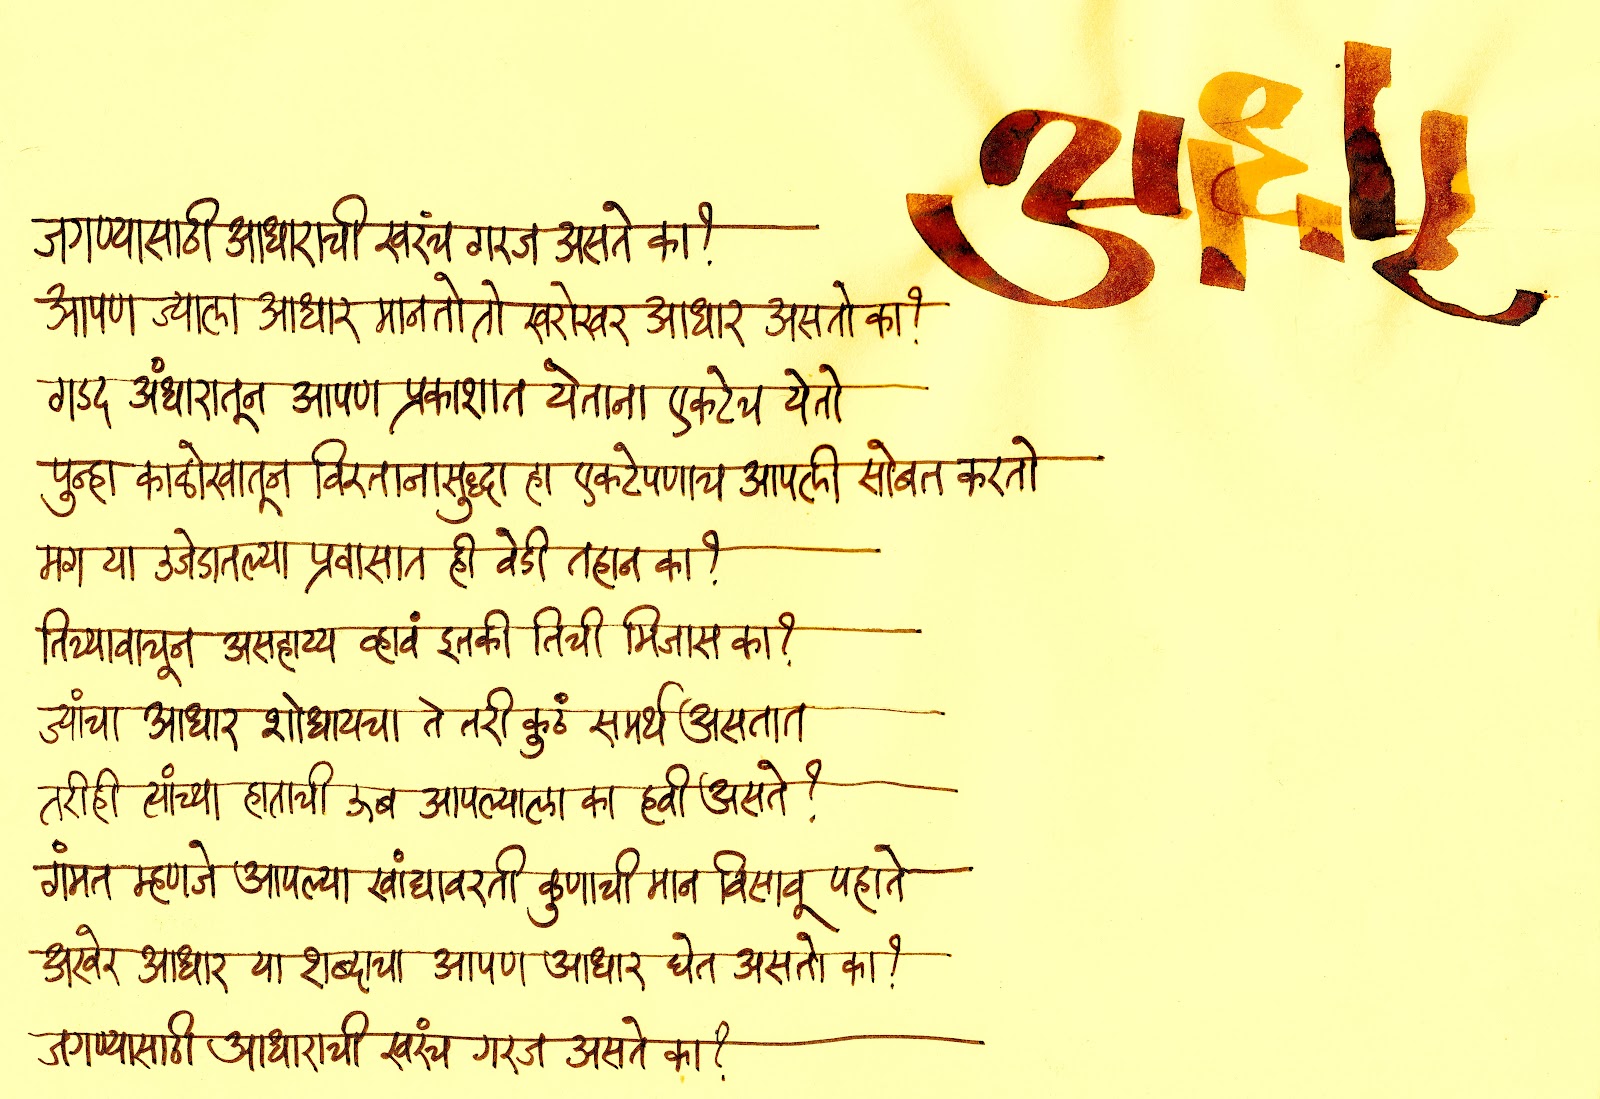 आधार
जगण्यासाठी आधाराची खरंच गरज असते का?
आपण ज्याला आधार मानतो तो खरोखर आधार असतो का?
गडद अंधारातून आपण प्रकाशात येताना एकटेच येतो
पुन्हा काळोखातून विरतानासुद्धा हा एकटेपणाच आपली सोबत करतो
मग या उजेडातल्या प्रवासात ही वेडी तहान का?
तिच्यावाचून असहाय्य व्हावं इतकी तिची मिजास का?
ज्यांचा आधार शोधायचा ते तरी कुठं समर्थ असतात
तरीही त्यांच्या हाताची ऊब आपल्याला का हवी असते?
गंमत म्हणजे आपल्या खांद्यावरती कुणाची मान विसावू पहाते
अखेर आधार या शब्दाचा आपण आधार घेत असतो का?
जगण्यासाठी आधाराची खरंच गरज असते का?